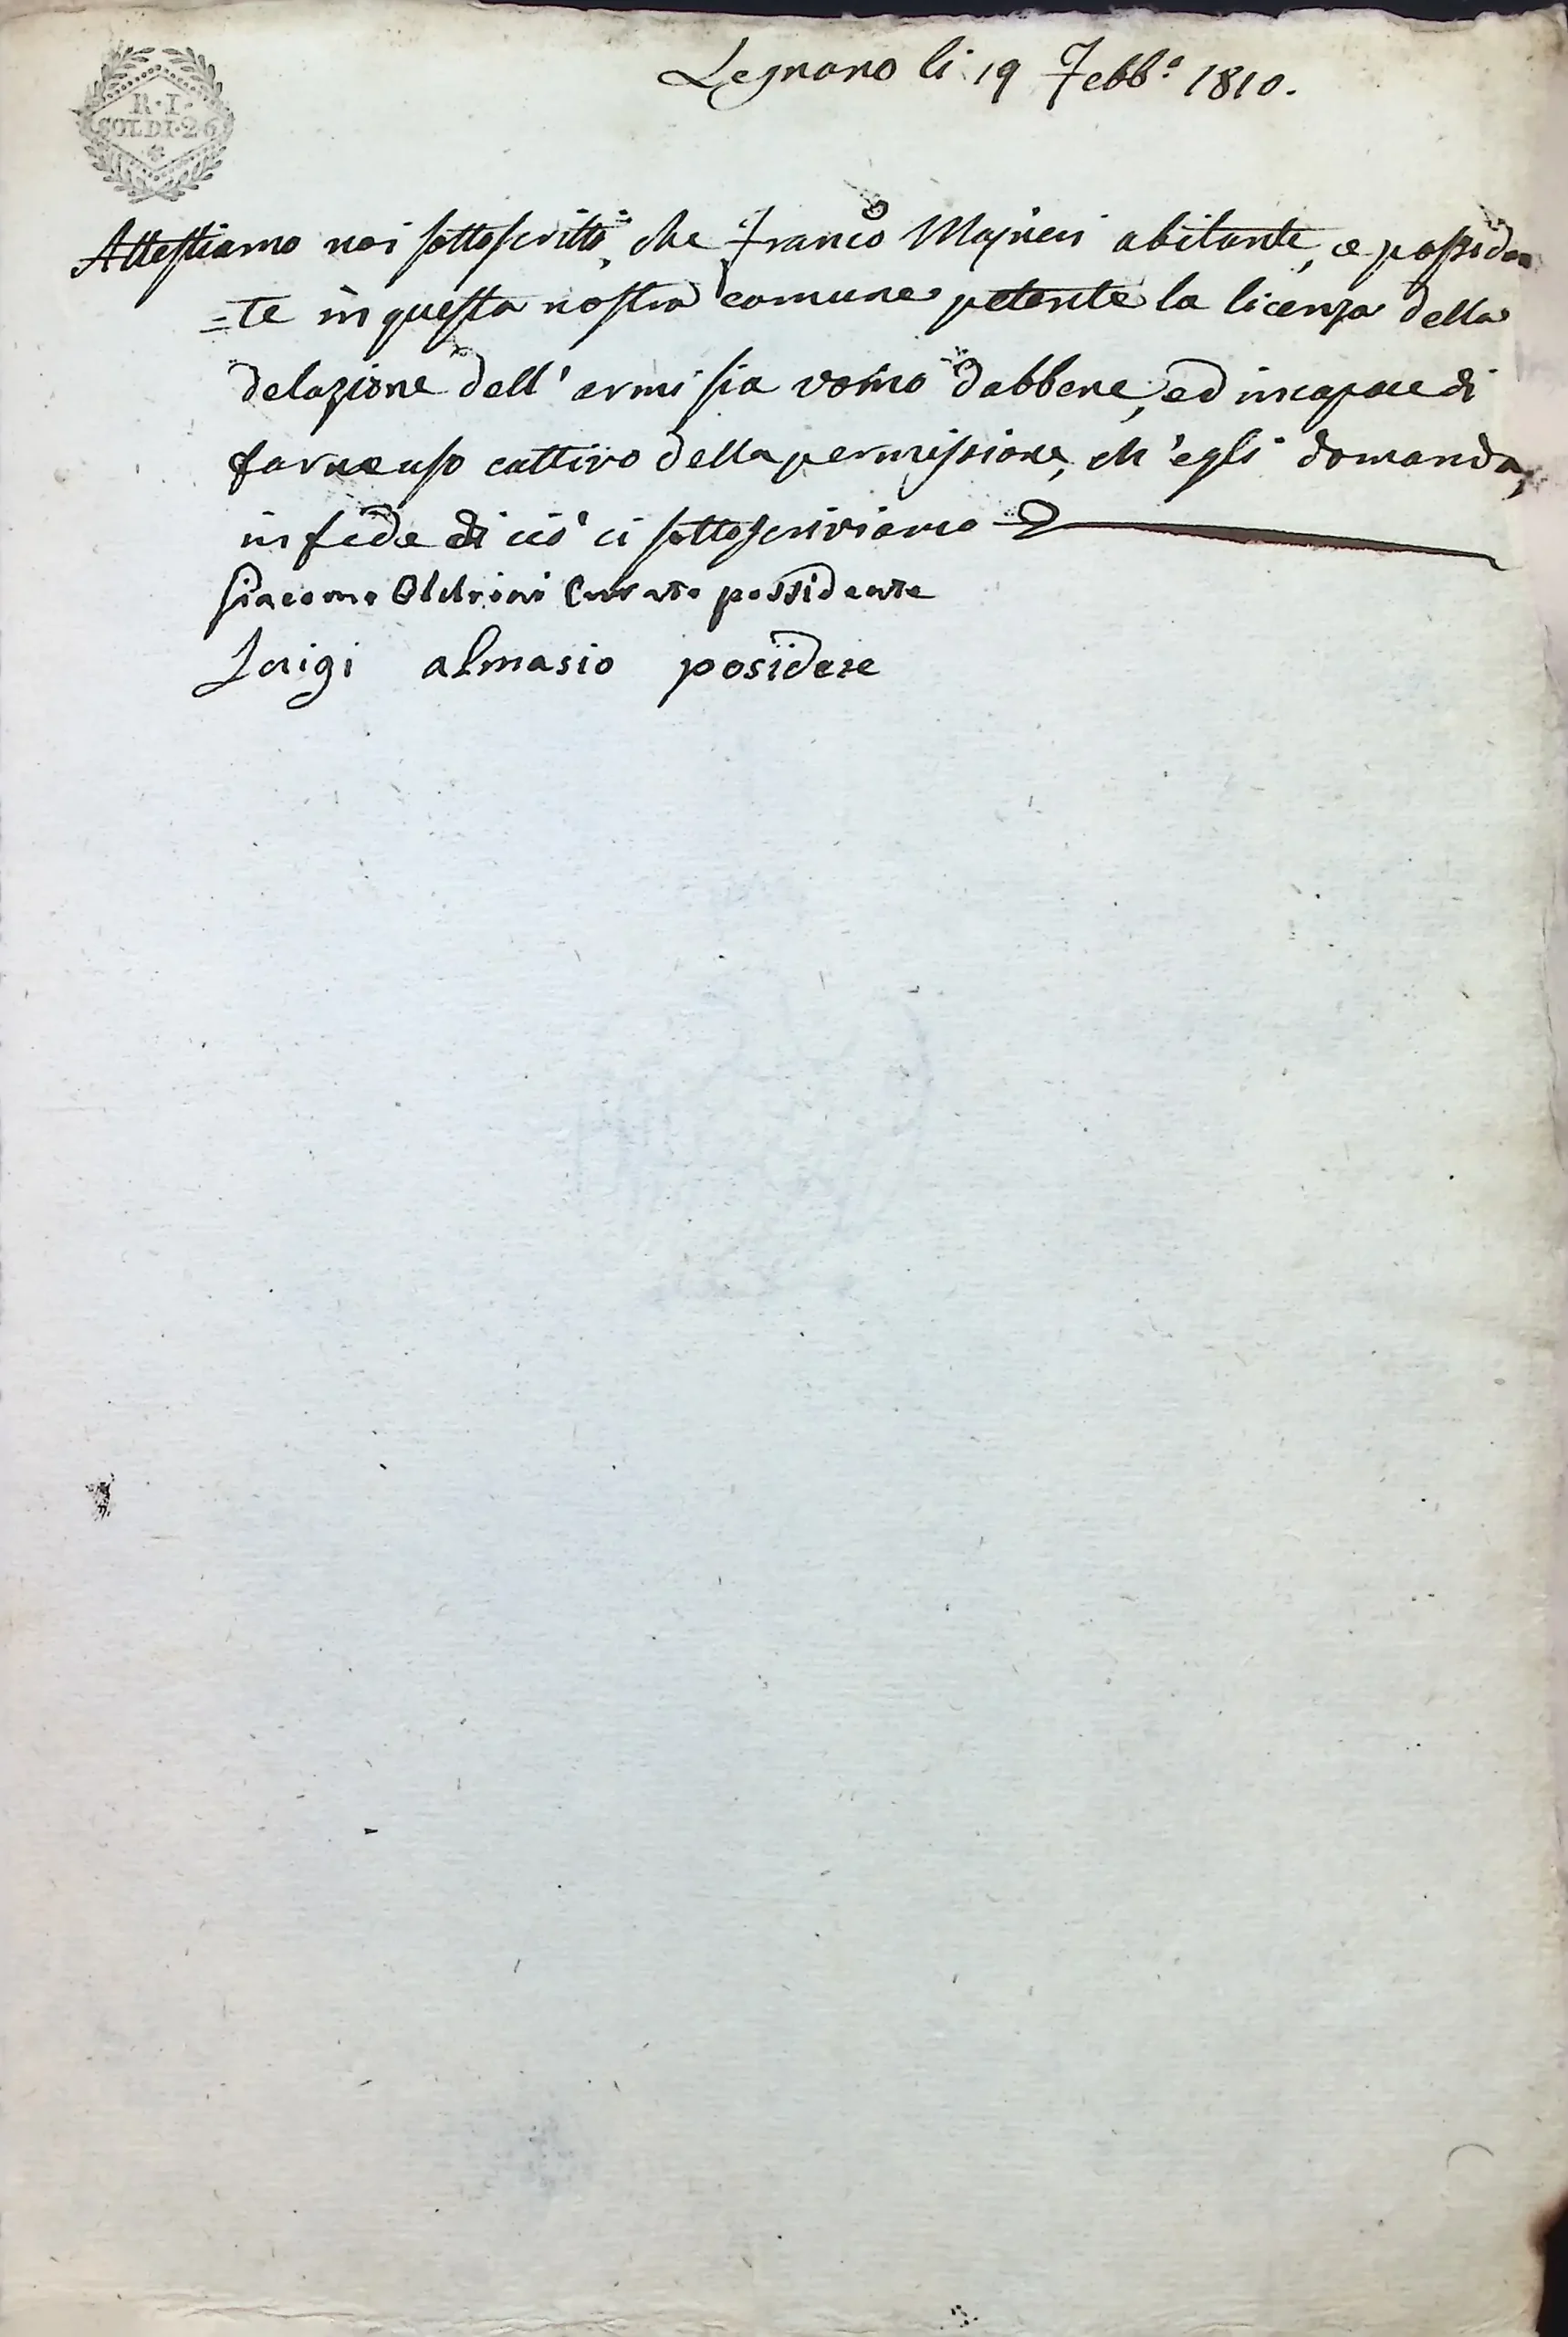 R·I·
SOLDI·26
Legnano li 19 Febb.º 1810.
Attestiamo noi sottoscritti, che Franco Majneri abitante, e possiden
=te in questa nostra comune petente la licenza della
delazione dell' armi sia uomo dabbene, ed incapace di
farne uso cattivo della permissione, ch'egli domanda,
in fede di ciò ci sottoscriviamo
Giacomo Oldrini Curato possidente
Luigi almasio posidete